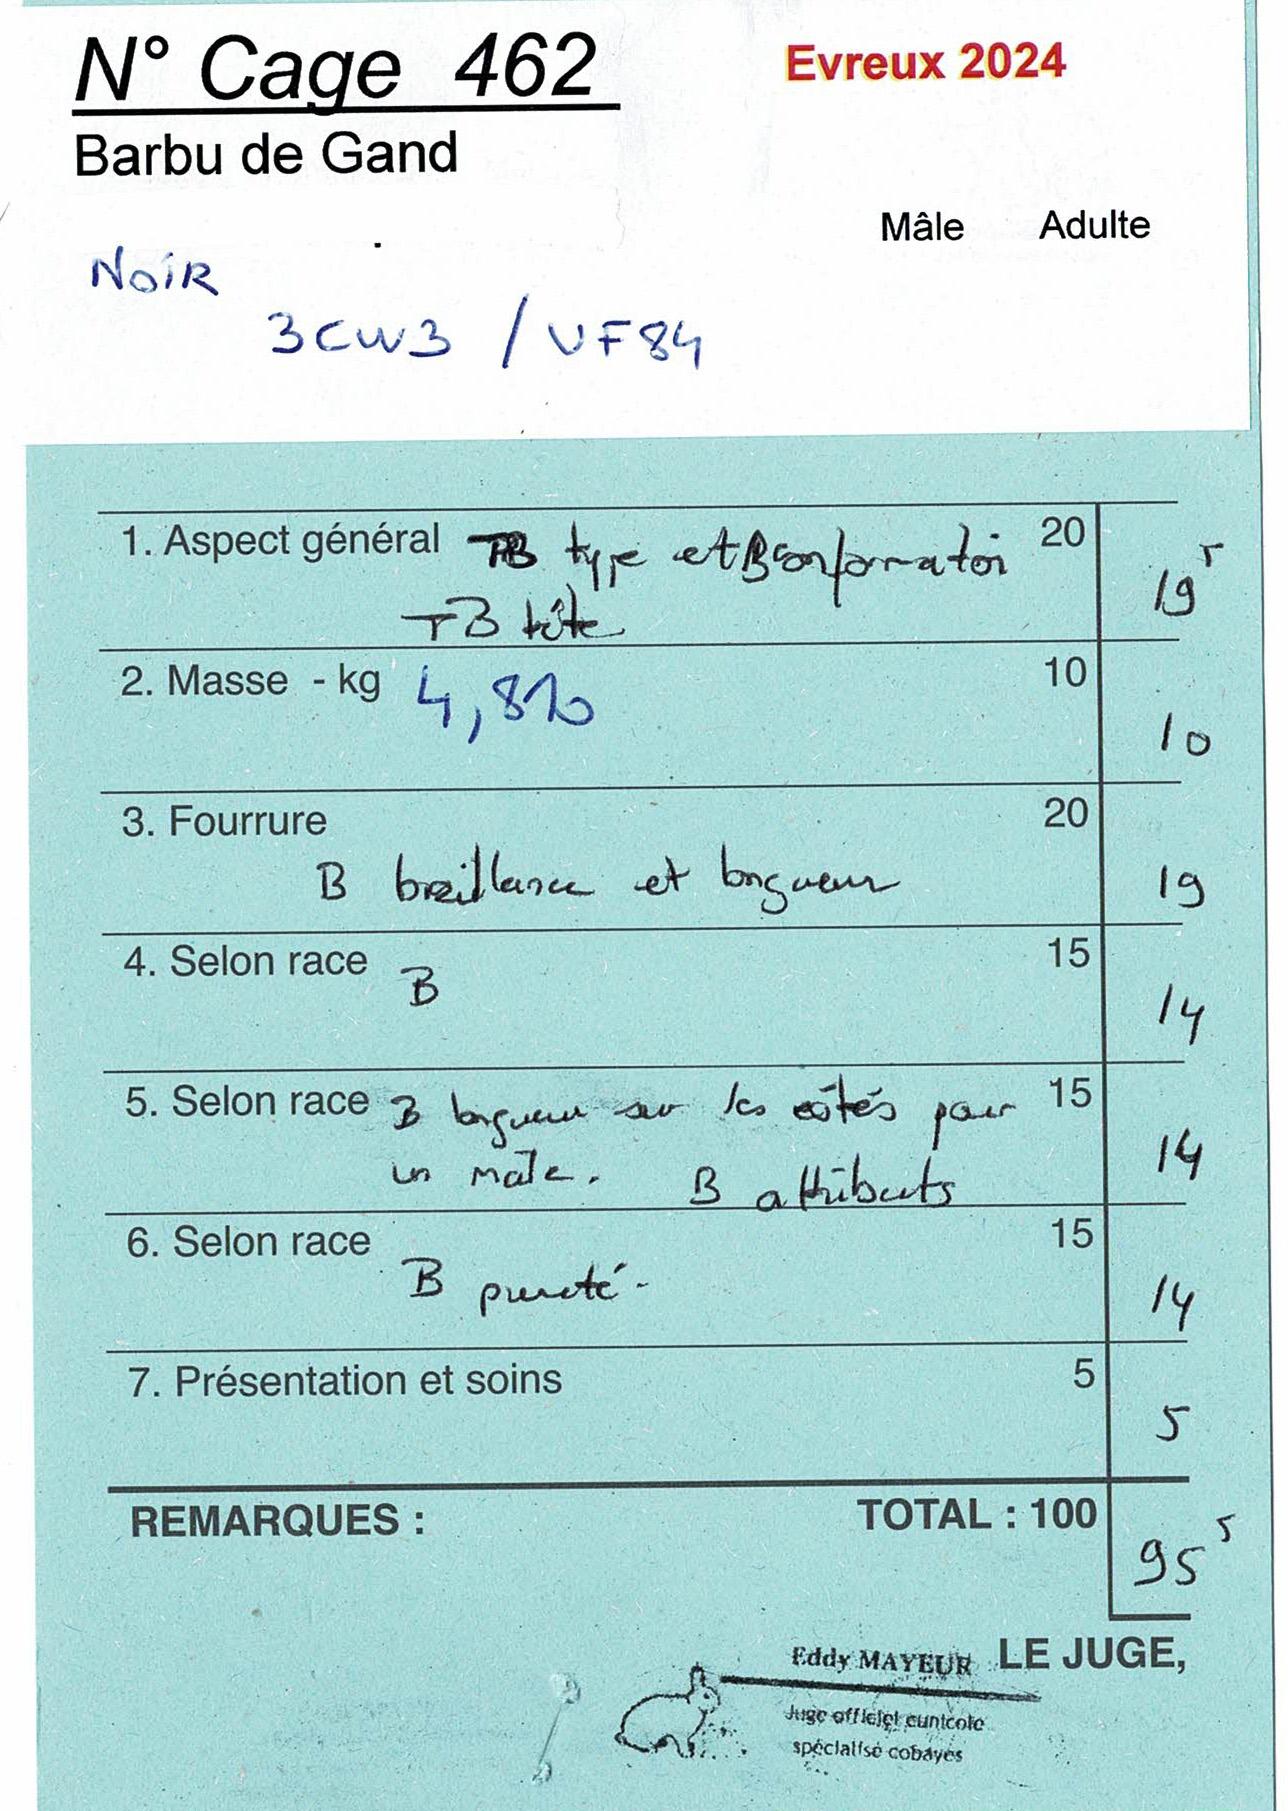 N° Cage 462
Evreux 2024
Barbu de Gand
Mâle Adulte
NOIR
3CW3 / VF84
1. Aspect général TB type et B conformation 20
19 5
TB tête
2. Masse - kg 4,810 10
10
3. Fourrure 20
B brillance et longueur 19
4. Selon race B 15
14
5. Selon race B longueur sur les côtés pour 15
un mâle. B attributs 14
6. Selon race 15
B pureté - 14
7. Présentation et soins 5
5
REMARQUES : TOTAL : 100
95 5
Eddy MAYEUR LE JUGE,
Juge officiel cunicole
spécialisé cobayes